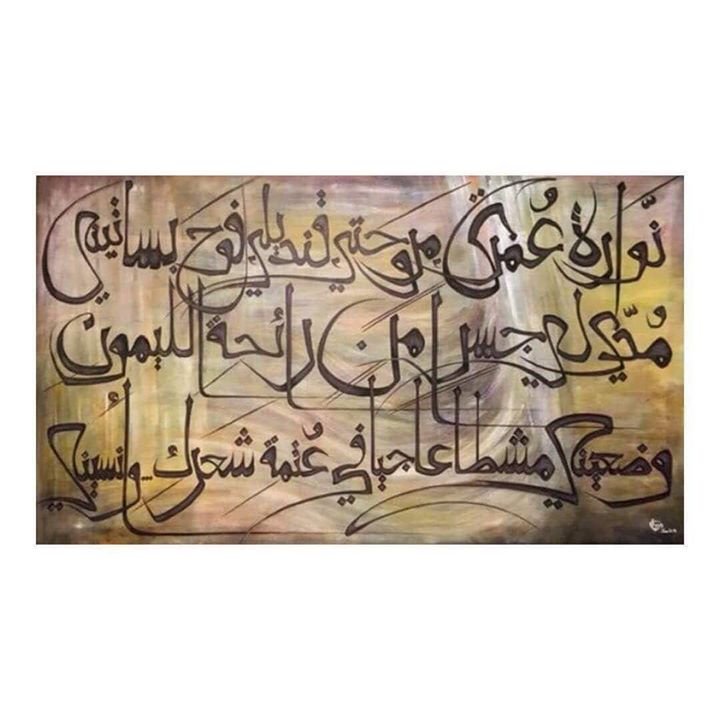 نَّوارةَ عُمري مروحتي قنديلي فوح بساتيني
مُدّي لي جسرا من رائحة الليمون
وضعيني مشطا عاجيا في عُتمة شعرك ... وأنسيني